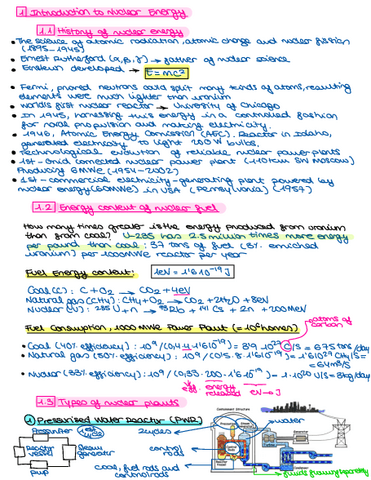 1 Introduction to Nuclear Energy
1.1 History of nuclear energy
• The science of atomic radiation, atomic change and nuclear fission
(1895-1945)
• Ernest Rutherford (α, β, γ) → father of nuclear science
• Einstein developed → E=mc²
• Fermi, proved neutrons could split many kinds of atoms, resulting
elements were much lighter than uranium
• World's first nuclear reactor → University of Chicago
• In 1945, harnessing this energy in a controlled fashion
for naval propulsion and making electricity.
• 1946, Atomic Energy Comission (AEC). Reactor in Idaho,
generated electricity to light 200 W bulbs.
• Technological evolution of reliable nuclear power plants
• 1st-Grid connected nuclear power plant (~110km SW Moscow)
Producing 6MWe (1954-2002)
• 1st-commercial electricity-generating plant powered by
nuclear energy (60MWe) in USA (Pennsylvania) (1957)
1.2 Energy content of nuclear fuel
How many times greater is the energy produced from uranium
than from coal? U-235 has 2.5 million times more energy
per pound than coal: 37 tons of fuel (3% enriched
uranium) per 1000MWe reactor per year
Fuel Energy content:
1eV = 1'6·10⁻¹⁹J
Coal (C): C + O₂ → CO₂ + 4eV
Natural gas (CH₄): CH₄ + O₂ → CO₂ + 2H₂O + 8eV
Nuclear (U): ²³⁵U + n → ⁹³Rb + ¹⁴¹Cs + 2n + 200MeV
Fuel Consumption, 1000 MWe Power Plant (=10⁶homes)
atoms of
carbon
• Coal (40% efficiency):
C/s = 6750 tons/day
• Natural gas (50% efficiency):
CH₄/s =
64m³/s
• Nuclear (33% efficiency):
U/s = 3kg/day
eff.
energy
released
eV → J
1.3 Types of nuclear plants
1 Pressurised Water Reactor (PWR)
Pressuriser
1st
cycle
2 cycles
water
Reactor
vessel
Steam
generator
pump
control
rods
cool, fuel rods and
control rods
Containment Structure
fluids flowing separately